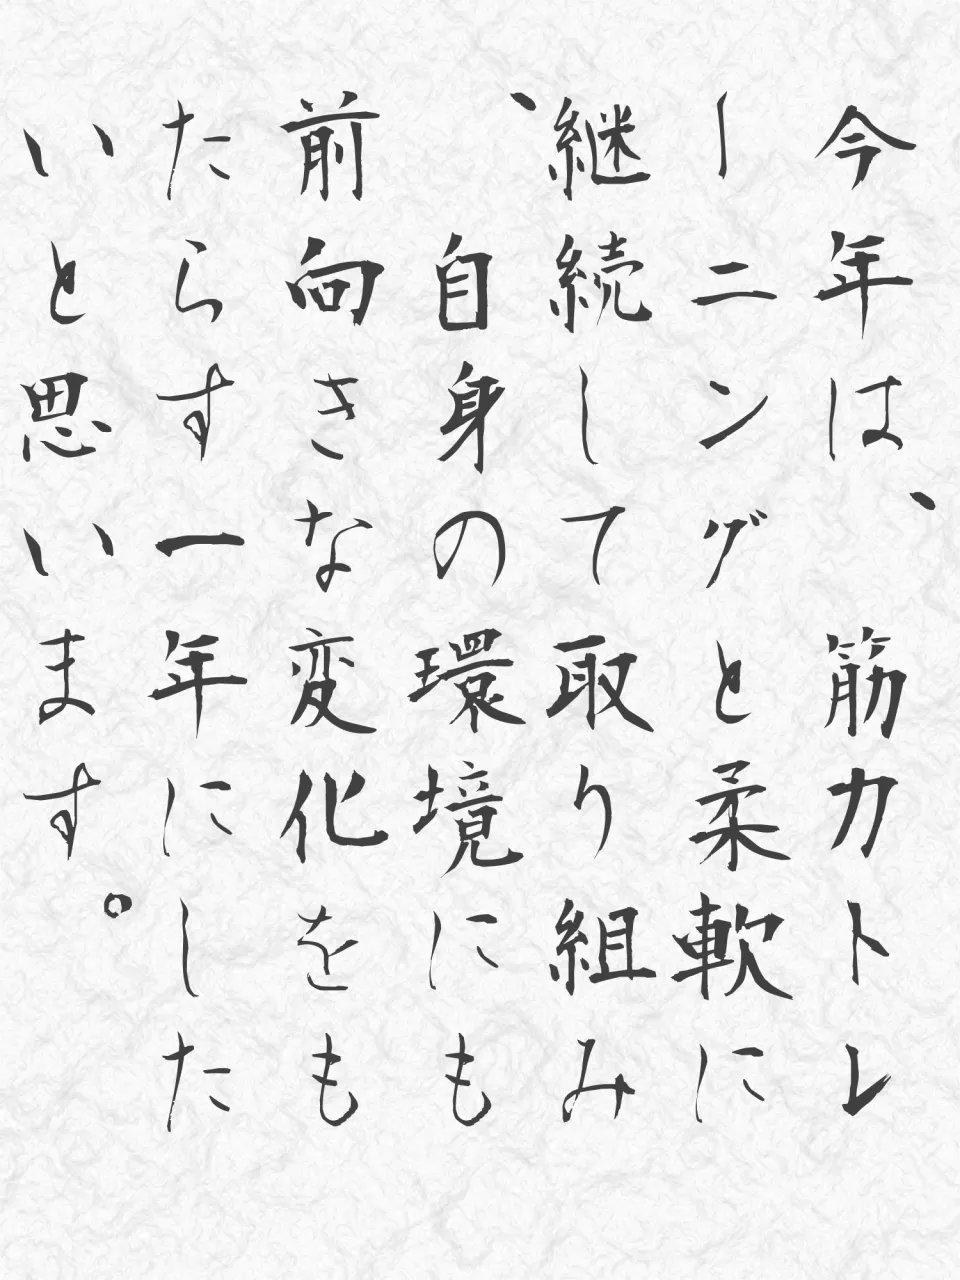 今年は、筋力トレ
ーニングと柔軟に
継続して取り組み
、自身の環境にも
前向きな変化をも
たらす一年にした
いと思います。